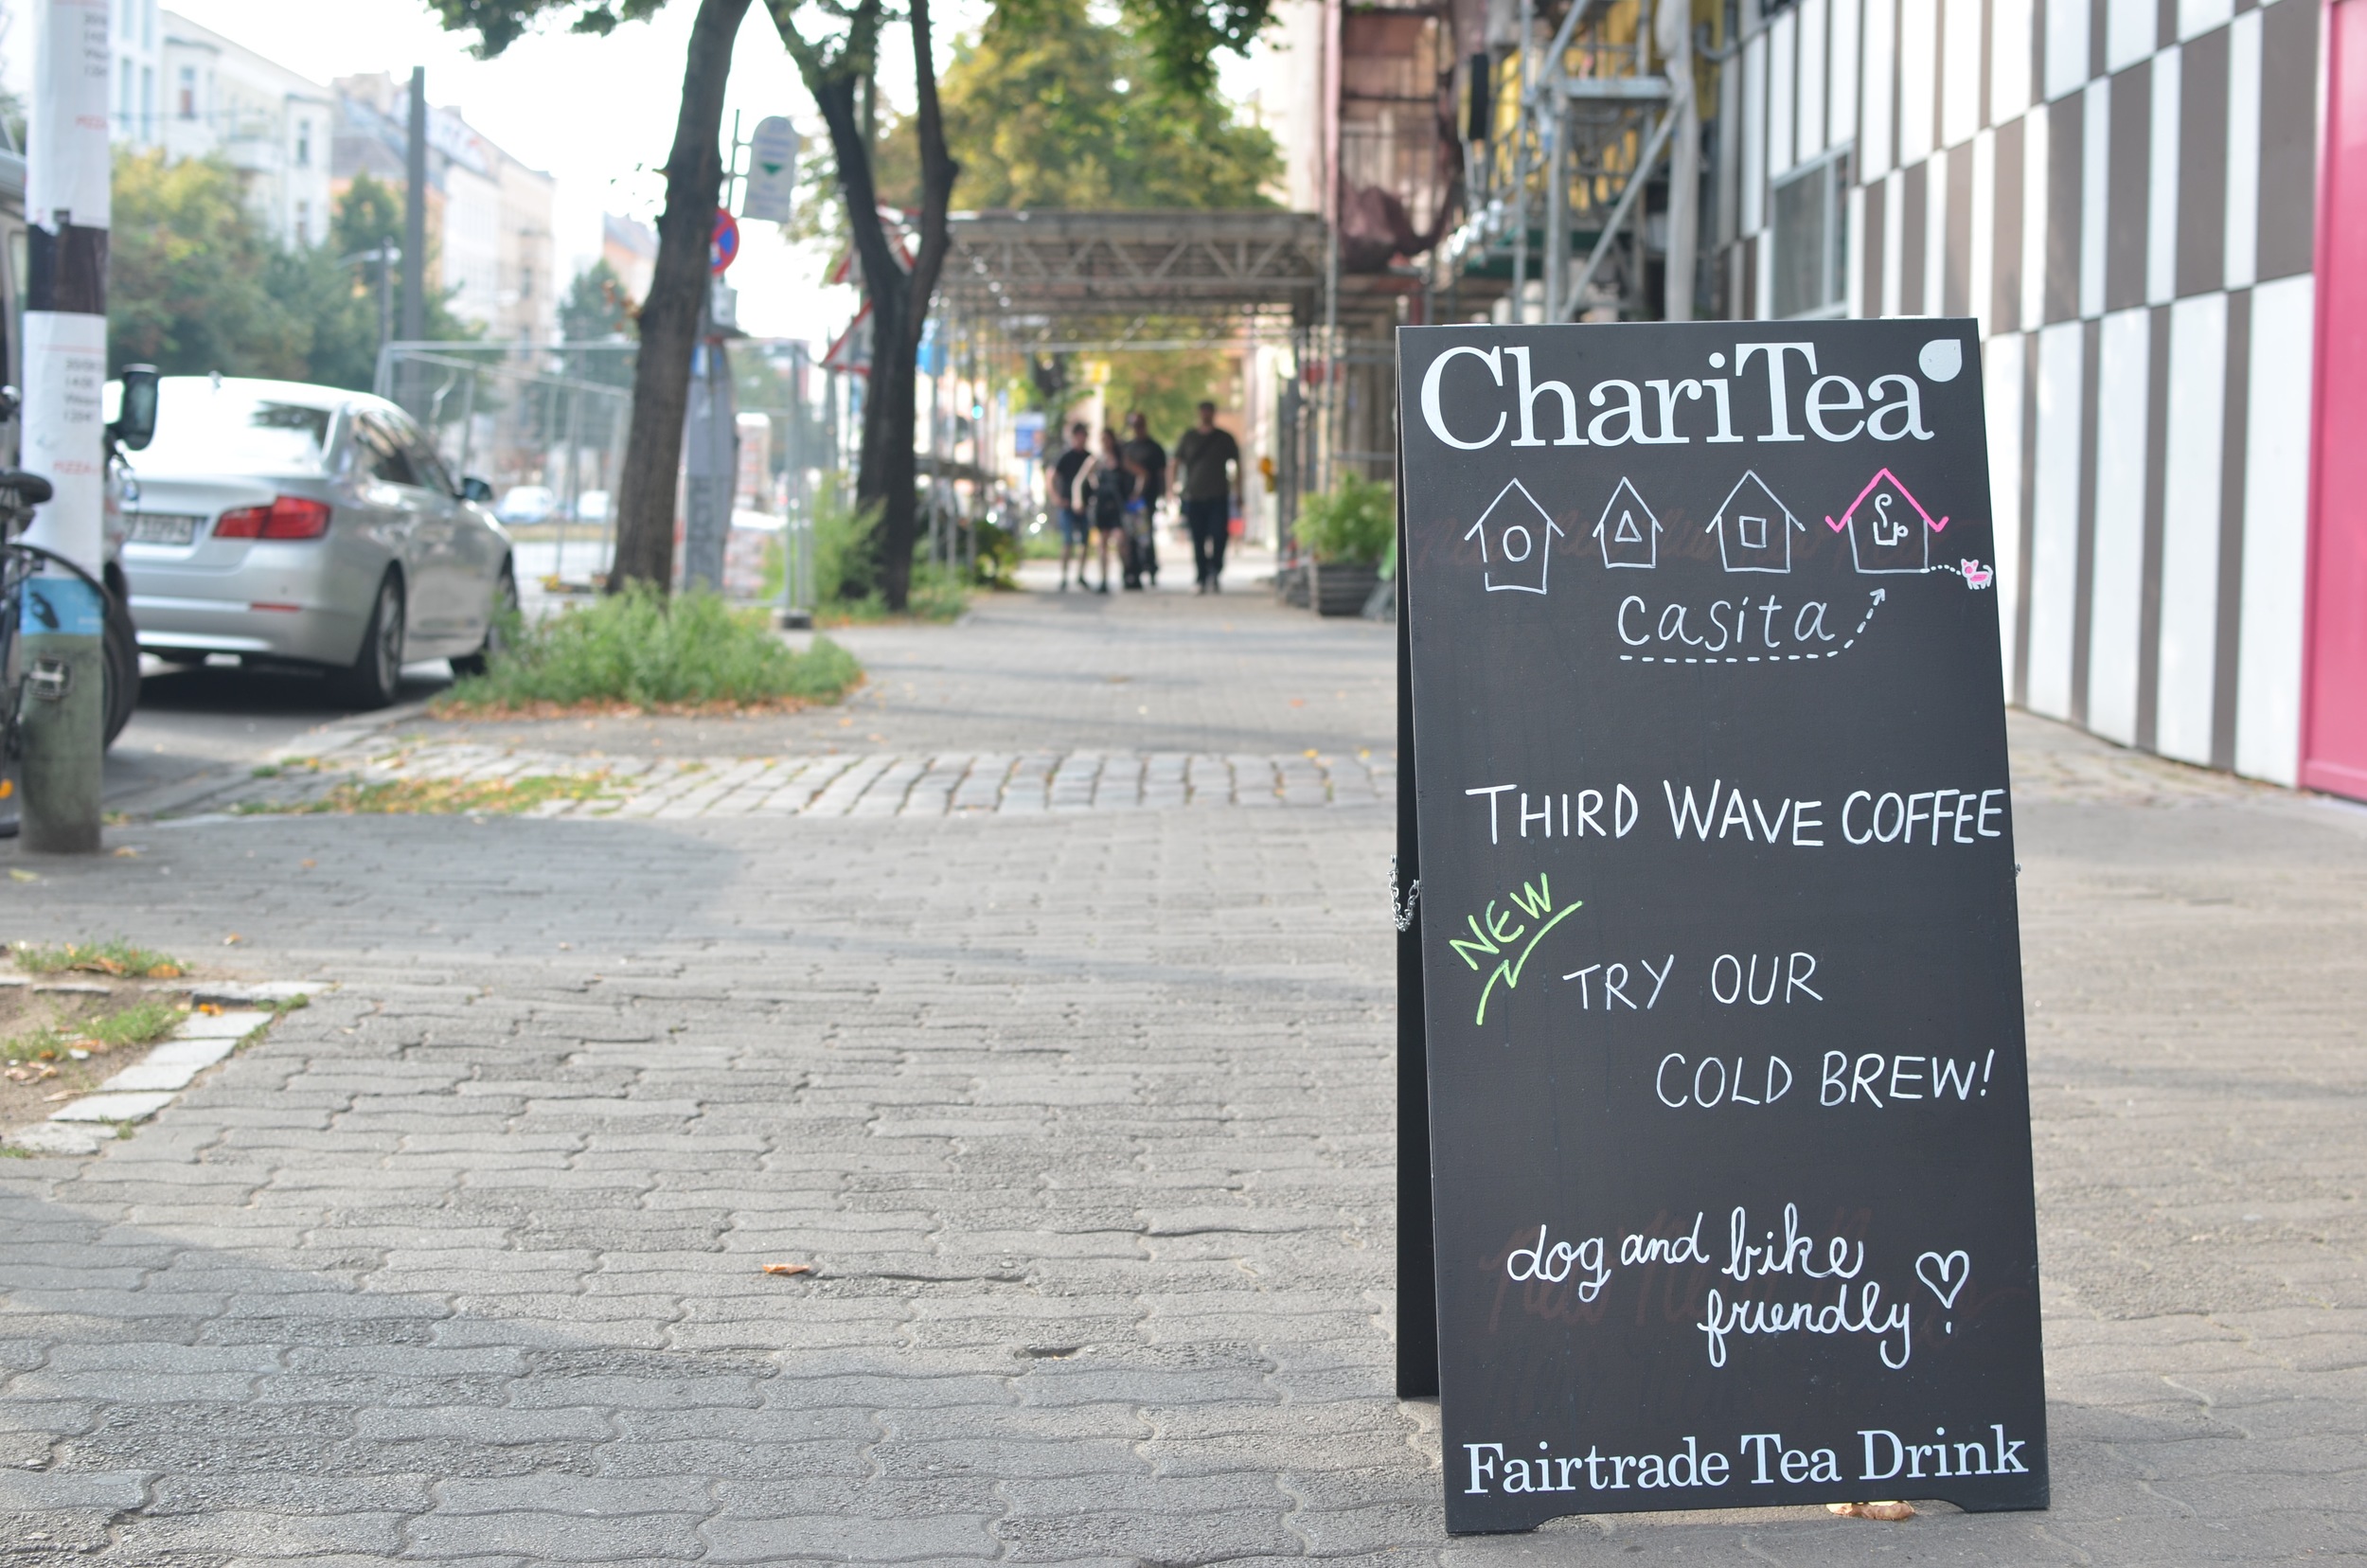 ChariTea
casita
THIRD WAVE COFFEE
NEW
TRY OUR
COLD BREW!
dog and bike
friendly!
Fairtrade Tea Drink